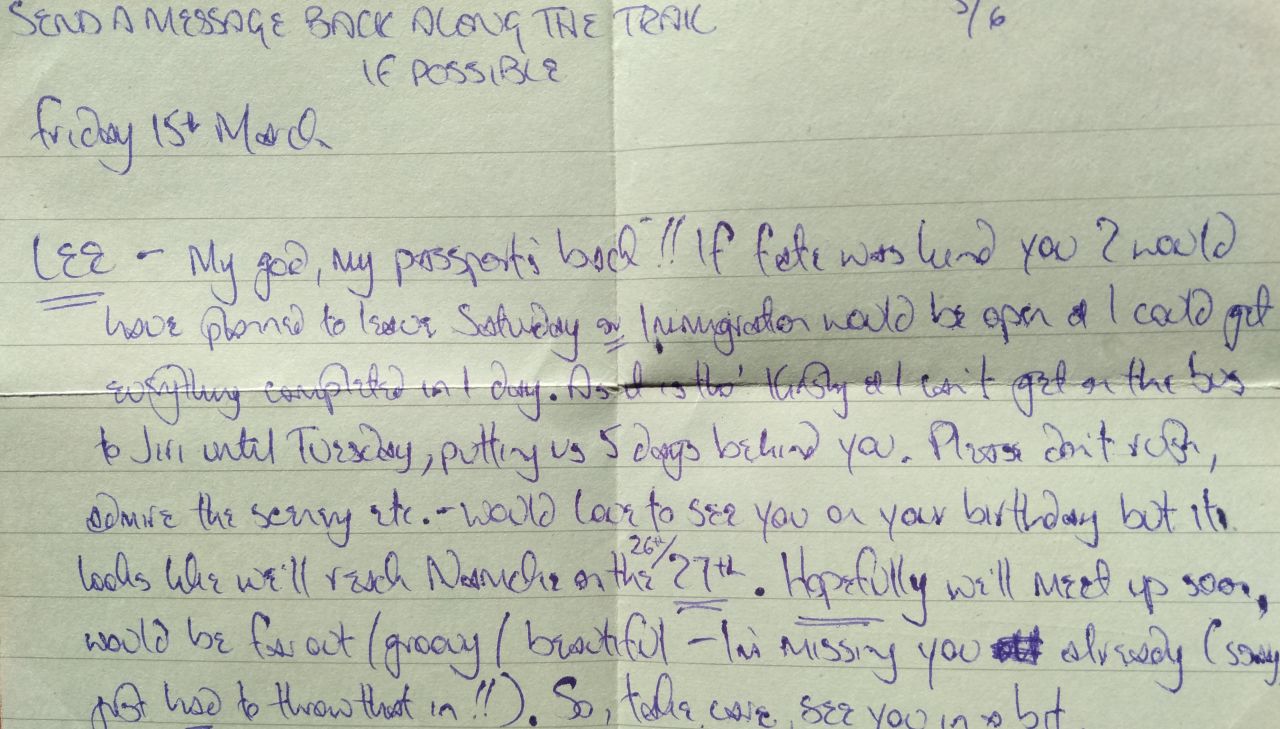 SEND A MESSAGE BACK ALONG THE TRAIL
IF POSSIBLE
Friday 15th March
LEE - My god, my passport's back!! If fate was kind you & would
have planned to leave Saturday & Immigration would be open & I could get
everything completed in 1 day. As it is tho' Kirsty & I can't get on the bus
to Jiri until Tuesday, putting us 5 days behind you. Please don't rush,
admire the scenery etc. - would love to see you on your birthday but it
looks like we'll reach Namche on the 26th/27th. Hopefully we'll meet up soon,
would be far out / groovy / beautiful - I'm missing you already (sorry
just had to throw that in!!). So, take care, see you in a bit